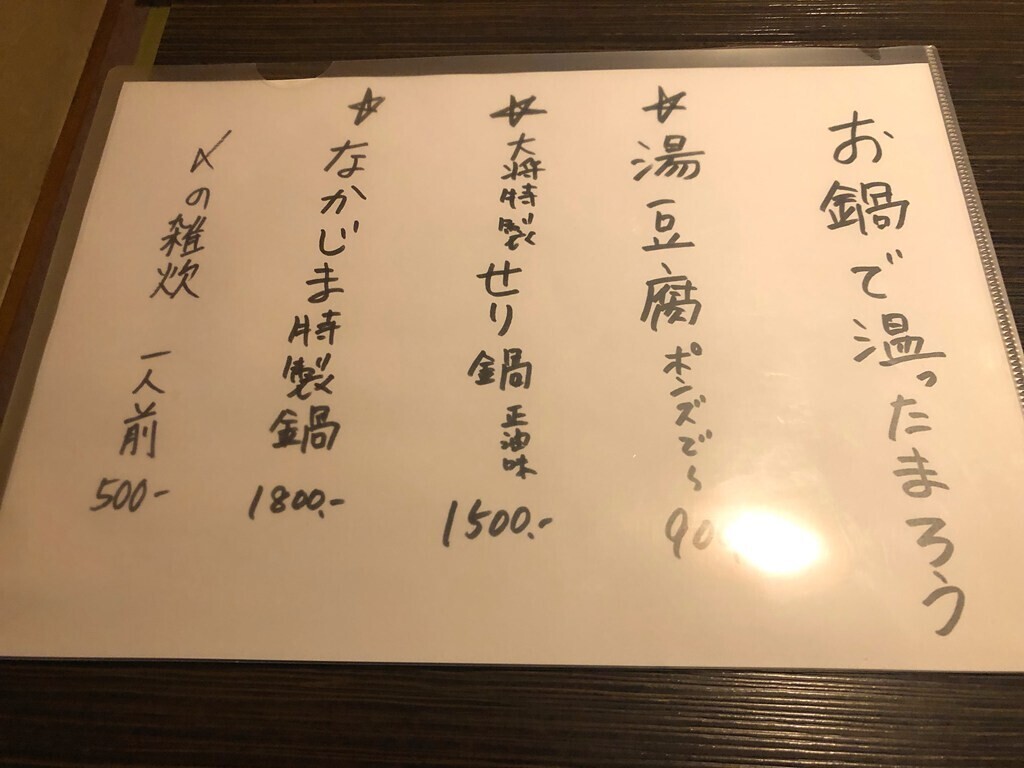 お鍋で温ったまろう
☆湯豆腐 ポンズで〜 90
☆大将特製せり鍋 正油味 1500.-
☆なかじま特製鍋 1800.-
〆の雑炊 一人前 500-